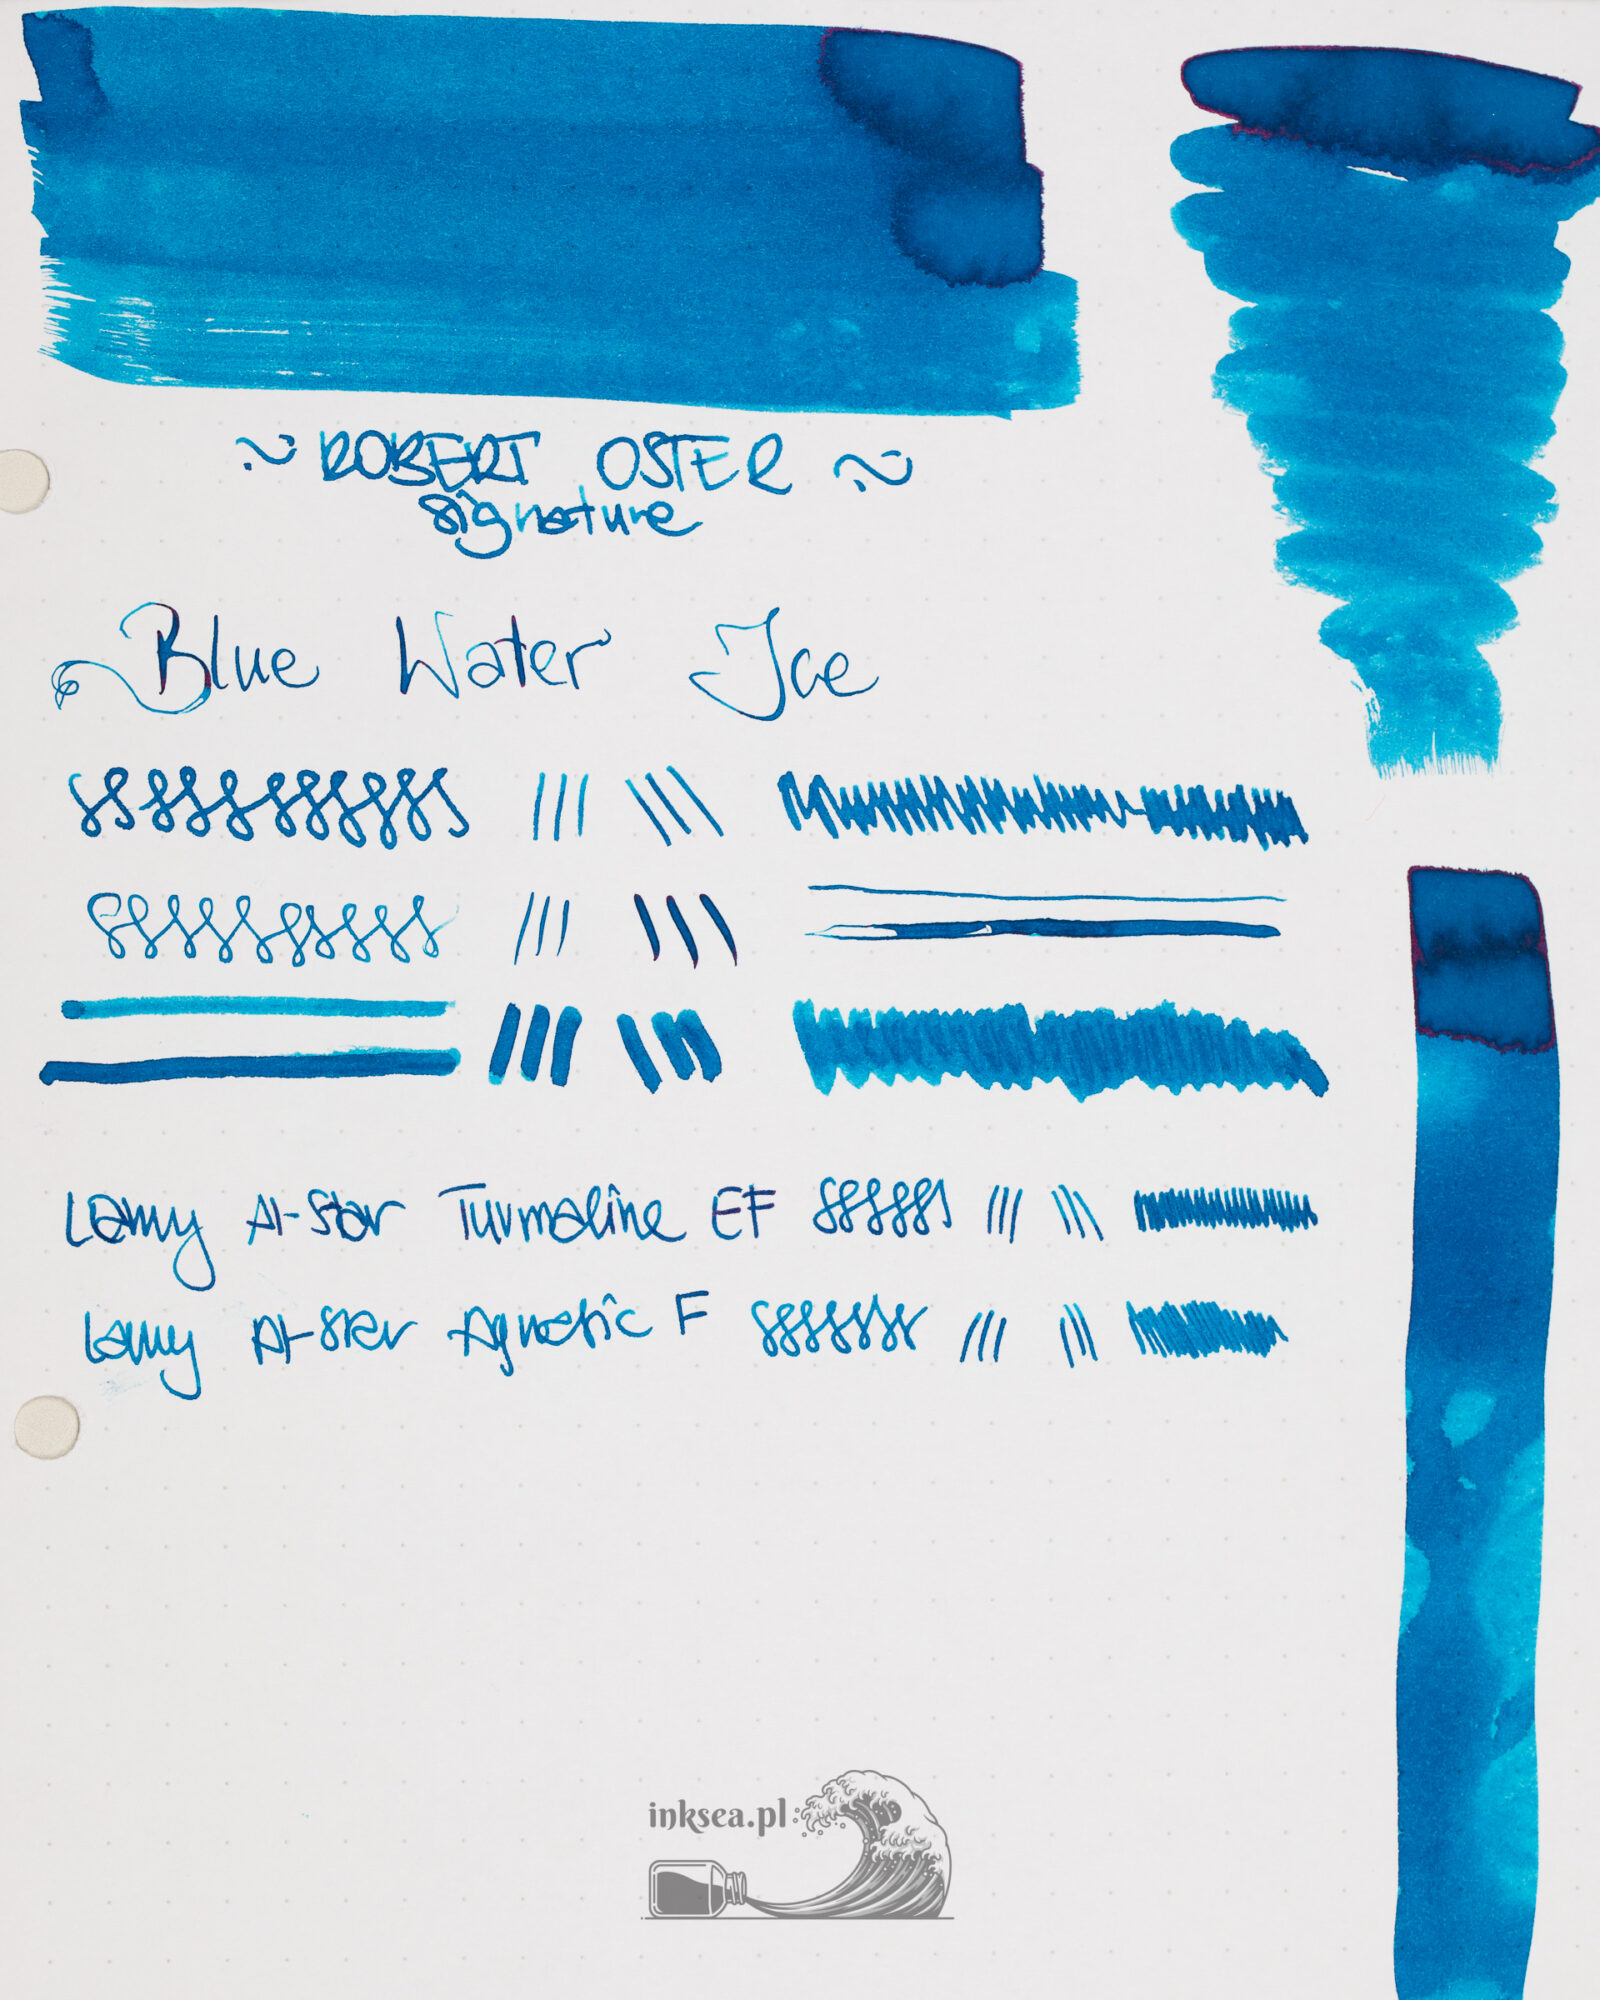 ~ ROBERT OSTER ~
signature
Blue Water Ice
Lamy Al-Star Turmaline EF
Lamy Al-Star Aquatic F
inksea.pl